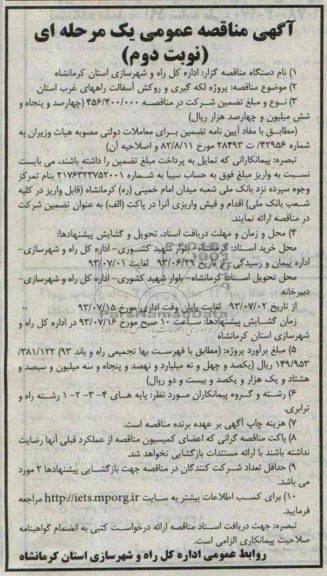 آگهی مناقصه عمومی یک مرحله ای
(نوبت دوم)
۱) نام دستگاه مناقصه گزار: اداره کل راه و شهرسازی استان کرمانشاه
۲) موضوع مناقصه: پروژه لکه گیری و روکش آسفالت راههای غرب استان
۳) نوع و مبلغ تضمین شرکت در مناقصه ۴۵۶/۴۰۰/۰۰۰ (چهارصد و پنجاه و
شش میلیون و چهارصد هزار ریال)
(مطابق با مفاد آیین نامه تضمین برای معاملات دولتی مصوبه هیات وزیران به
شماره ۴۲۹۵۶/ ت ۲۸۴۹۳ مورخ ۸۲/۸/۱۱ و اصلاحیه آن)
تبصره: پیمانکارانی که تمایل به پرداخت مبلغ تضمین را داشته باشند، می بایست
نسبت به واریز مبلغ فوق به حساب سیبا به شماره ۲۱۷۶۳۲۳۷۵۲۰۰۱ بنام تمرکز
وجوه سپرده نزد بانک ملی شعبه میدان امام خمینی (ره) کرمانشاه (قابل واریز در کلیه
شعب بانک ملی) اقدام و فیش واریزی آنرا در پاکت (الف) به عنوان تضمین شرکت
در مناقصه ارائه نمایند.
۴) محل و زمان و مهلت دریافت اسناد، تحویل و گشایش پیشنهادها:
محل خرید اسناد: کرمانشاه- بلوار شهید کشوری- اداره کل راه و شهرسازی-
اداره پیمان و رسیدگی از تاریخ ۹۳/۰۶/۲۹ لغایت ۹۳/۰۷/۰۱
محل تحویل اسناد: کرمانشاه- بلوار شهید کشوری- اداره کل راه و شهرسازی-
دبیرخانه
از تاریخ ۹۳/۰۷/۰۲ لغایت پایان وقت اداری مورخ ۹۳/۰۷/۱۵
زمان گشایش پیشنهادها: ساعت ۱۰ صبح مورخ ۹۳/۰۷/۱۶ در اداره کل راه و
شهرسازی استان کرمانشاه
۵) مبلغ برآورد پروژه: (مطابق با فهرست بها تجمیعی راه و باند ۹۳) ۳۸۱/۱۲۲/
۱۴۹/۹۵۳ ریال (یکصد و چهل و نه میلیارد و نهصد و پنجاه و سه میلیون و سیصد و
هشتاد و یک هزار و یکصد و بیست و دو ریال)
۶) رشته و گروه پیمانکاران مورد نظر: پایه های ۴- ۳- ۲- ۱ رشته راه و
ترابری.
۷) هزینه چاپ آگهی بر عهده برنده مناقصه است.
۸) پاکت مناقصه گرانی که اعضای کمیسیون مناقصه از عملکرد قبلی آنها رضایت
نداشته باشند با ارائه مستندات بازگشایی نخواهد شد.
۹) حداقل تعداد شرکت کنندگان در مناقصه جهت بازگشایی پیشنهادها ۲ مورد
می باشد.
۱۰) برای کسب اطلاعات بیشتر به سایت http://iets.mporg.ir مراجعه
فرمایید.
تبصره: جهت دریافت اسناد مناقصه ارائه درخواست کتبی به انضمام گواهینامه
صلاحیت پیمانکاری الزامی است.
روابط عمومی اداره کل راه و شهرسازی استان کرمانشاه